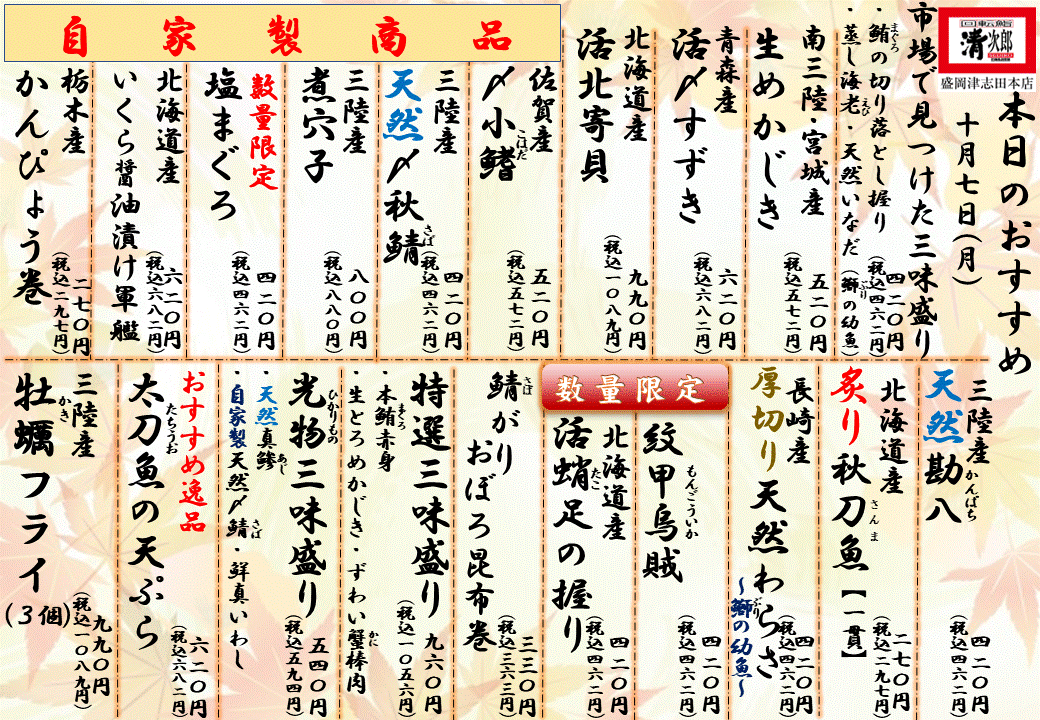 回転鮨
清次郎
盛岡津志田本店
本日のおすすめ
十月七日(月)
市場で見つけた三味盛り
・鮪の切り落とし握り
まぐろ
・蒸し海老・天然いなだ(鰤の幼魚)
えび
ぶり
四二〇円
(税込四六二円)
南三陸・宮城産
生めかじき
五二〇円
(税込五七二円)
青森産
活〆すずき
六二〇円
(税込六八二円)
北海道産
活北寄貝
九九〇円
(税込一〇八九円)
自家製商品
佐賀産
〆小鰭
こはだ
五二〇円
(税込五七二円)
三陸産
天然〆秋鯖
さば
四二〇円
(税込四六二円)
三陸産
煮穴子
八〇〇円
(税込八八〇円)
数量限定
塩まぐろ
四二〇円
(税込四六二円)
北海道産
いくら醤油漬け軍艦
六二〇円
(税込六八二円)
栃木産
かんぴょう巻
二七〇円
(税込二九七円)
三陸産
天然勘八
かんぱち
四二〇円
(税込四六二円)
北海道産
炙り秋刀魚【一貫】
さんま
二七〇円
(税込二九七円)
長崎産
厚切り天然わらさ
~鰤の幼魚~
ぶり
四二〇円
(税込四六二円)
数量限定
紋甲烏賊
もんごういか
四二〇円
(税込四六二円)
北海道産
活蛸足の握り
たこ
四二〇円
(税込四六二円)
鯖がり
さば
おぼろ昆布巻
三三〇円
(税込三六三円)
特選三味盛り
・本鮪赤身
まぐろ
・生とろめかじき・ずわい蟹棒肉
かに
九六〇円
(税込一〇五六円)
光物三味盛り
ひかりもの
・天然真鯵
あじ
・自家製天然〆鯖・鮮真いわし
さば
五四〇円
(税込五九四円)
おすすめ逸品
太刀魚の天ぷら
たちうお
六二〇円
(税込六八二円)
三陸産
牡蠣フライ(3個)
かき
九九〇円
(税込一〇八九円)